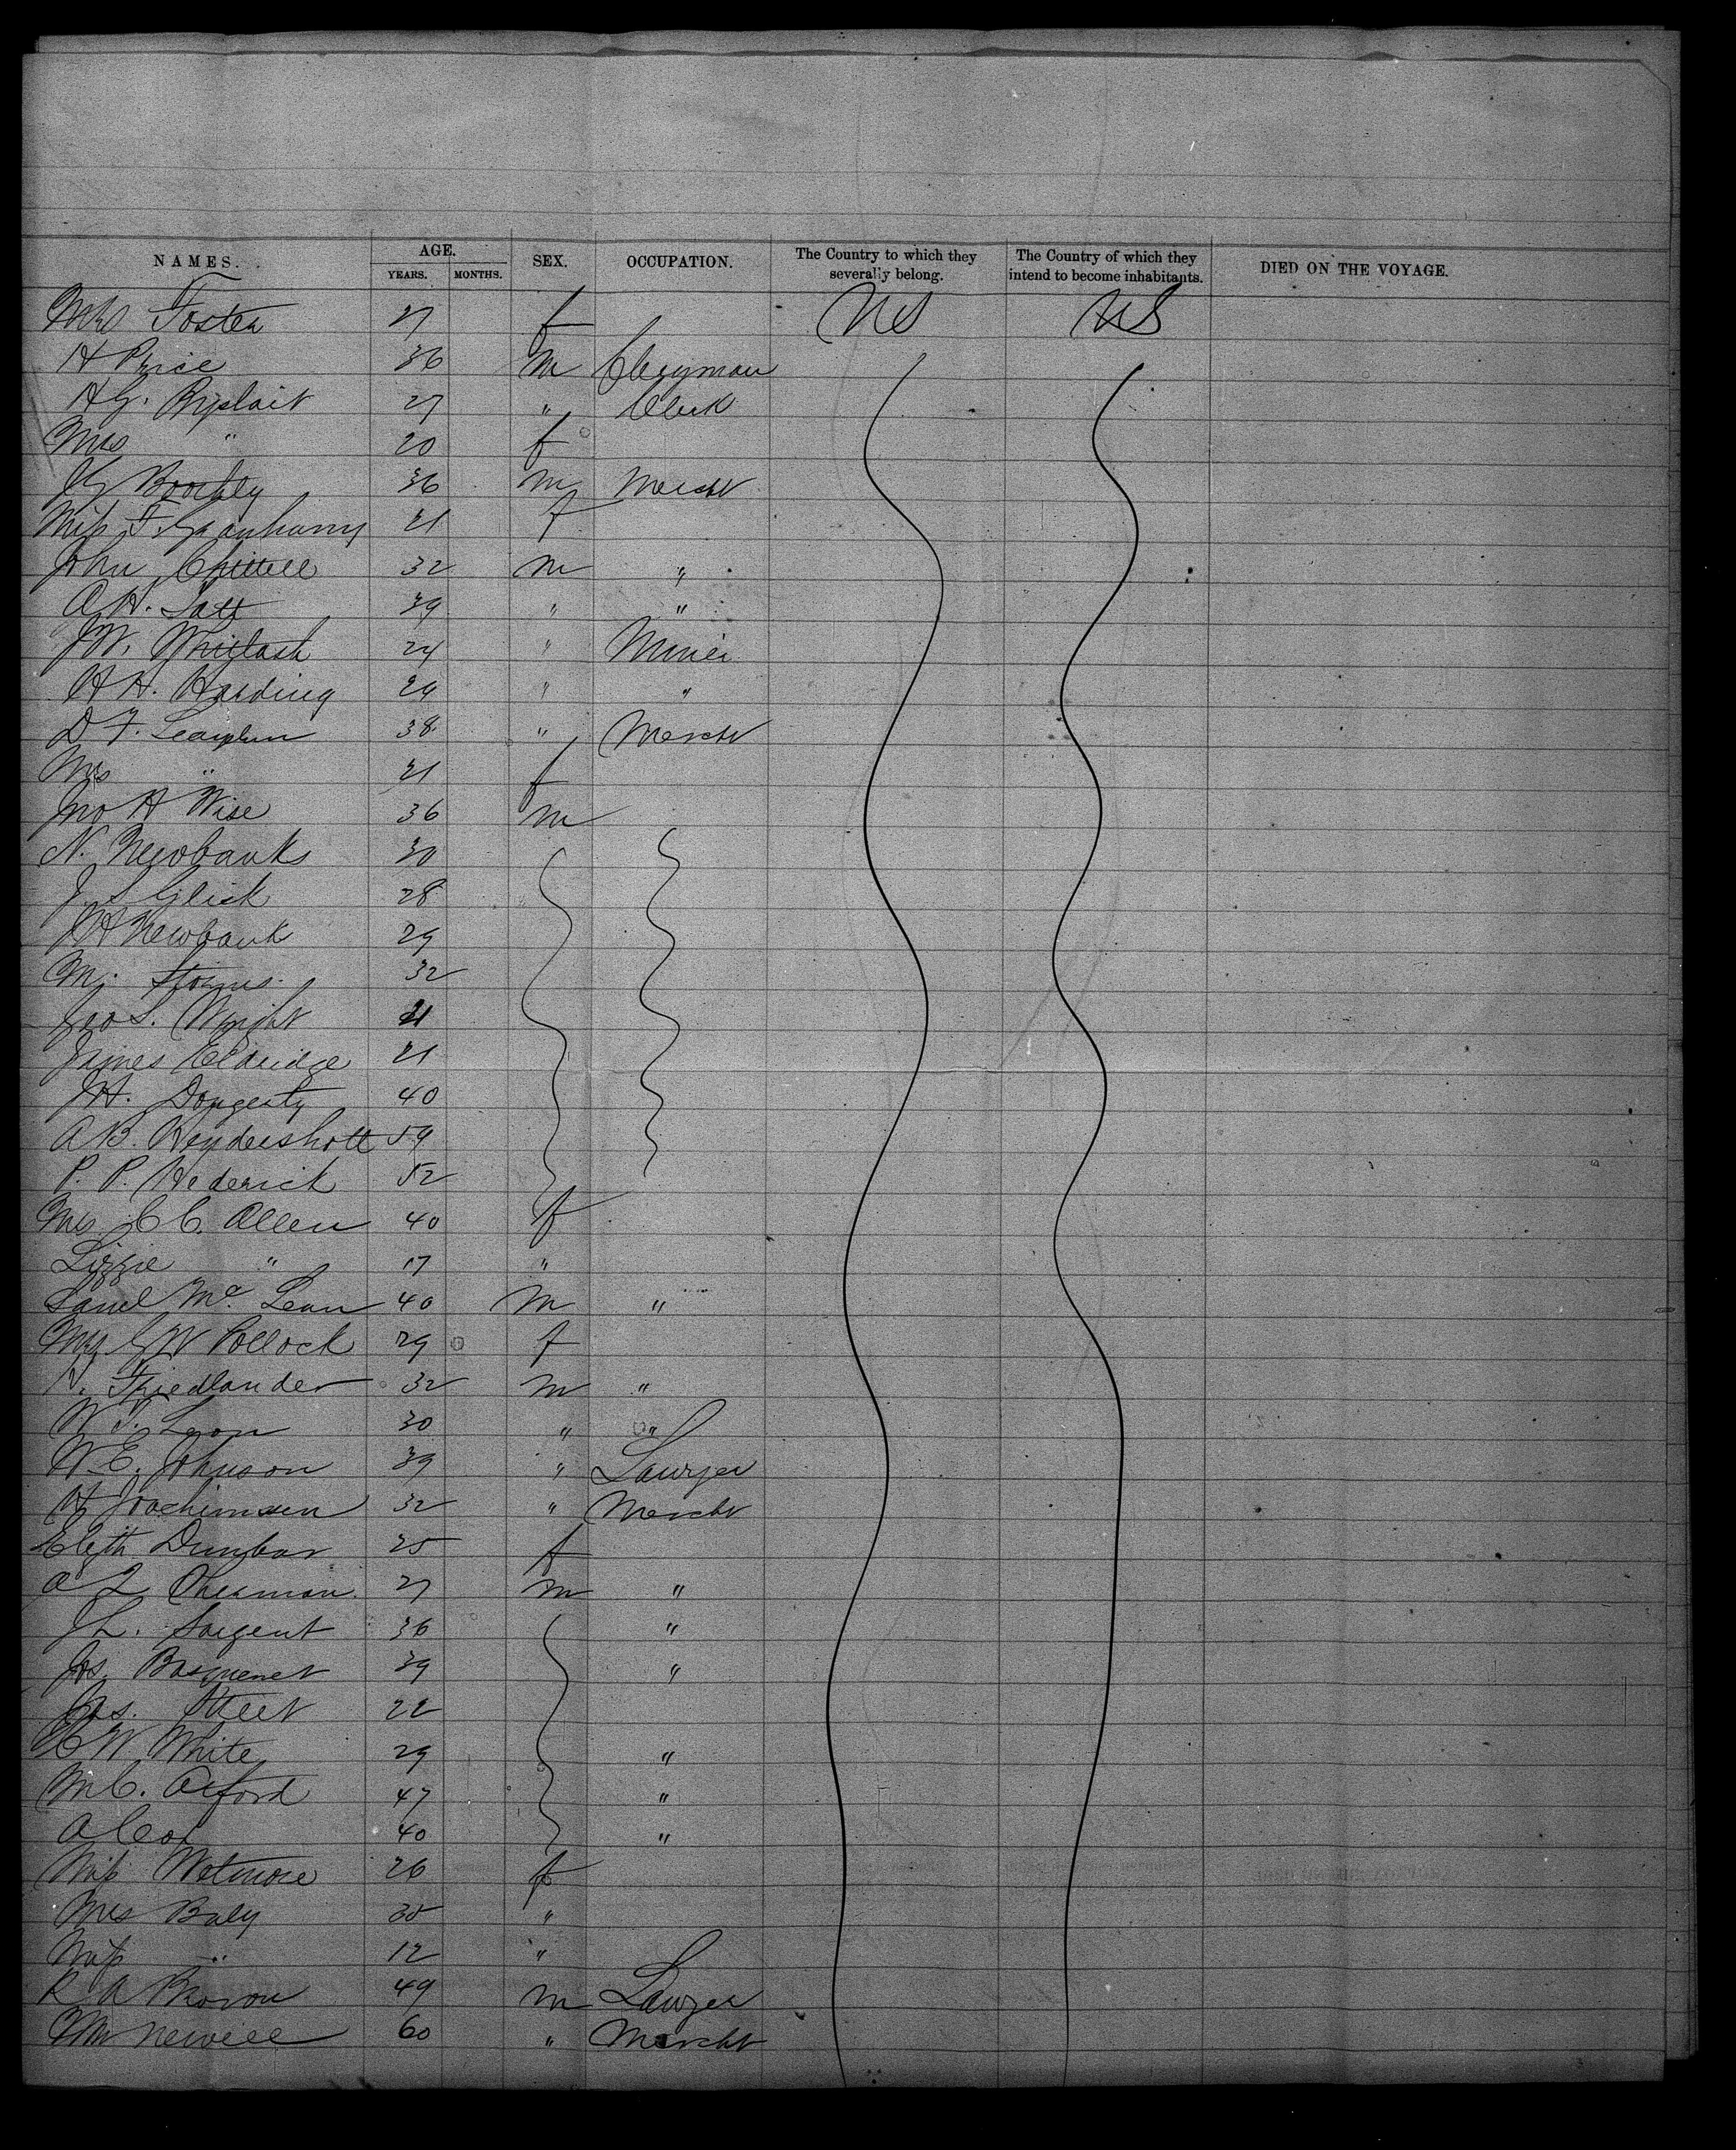 NAMES. AGE. SEX. OCCUPATION. The Country to which they severally belong. The Country of which they intend to become inhabitants. DIED ON THE VOYAGE.
YEARS. MONTHS.
Mrs Foster 27 f US US
H Price 36 m Clergyman
H G. 27 " Clerk
Mrs " 20 f
J G 36 m Mercht
Miss F. 21 f
John 32 m "
A H. 39 " "
J W. Whitlash 24 " Miner
H H. Harding 29 " "
D F. 38 " Mercht
Mrs " 21 f
Jno A Wise 36 m
N. Newbanks 30
J. S Glick 28
J H Newbank 29
M. Storms. 32
Geo S. Wright 21
James Eldridge 21
J H. Dougerty 40
A B. Hendershott 59
P. P. Hederick 52
Mrs C C. Allen 40 f
Lizzie " 17 "
Saml Mc. Lean 40 m "
Mrs G W Pollock 29 f
H. Friedlander 32 m "
W 30 " "
W. E. Johnson 39 " Lawyer
H Joachimsen 32 " Mercht
Elizth Dunbar 25 f
A L 27 m "
J L. Sargent 36 "
Jos. 39 "
Jas. Street 22
C W White 29 "
M C. Alford 47 "
A Cox 40 "
Miss Wetmore 26 f
Mrs Baly 35 "
Miss " 12 "
R A Brown 49 m Lawyer
Wm Newell 60 " Mercht